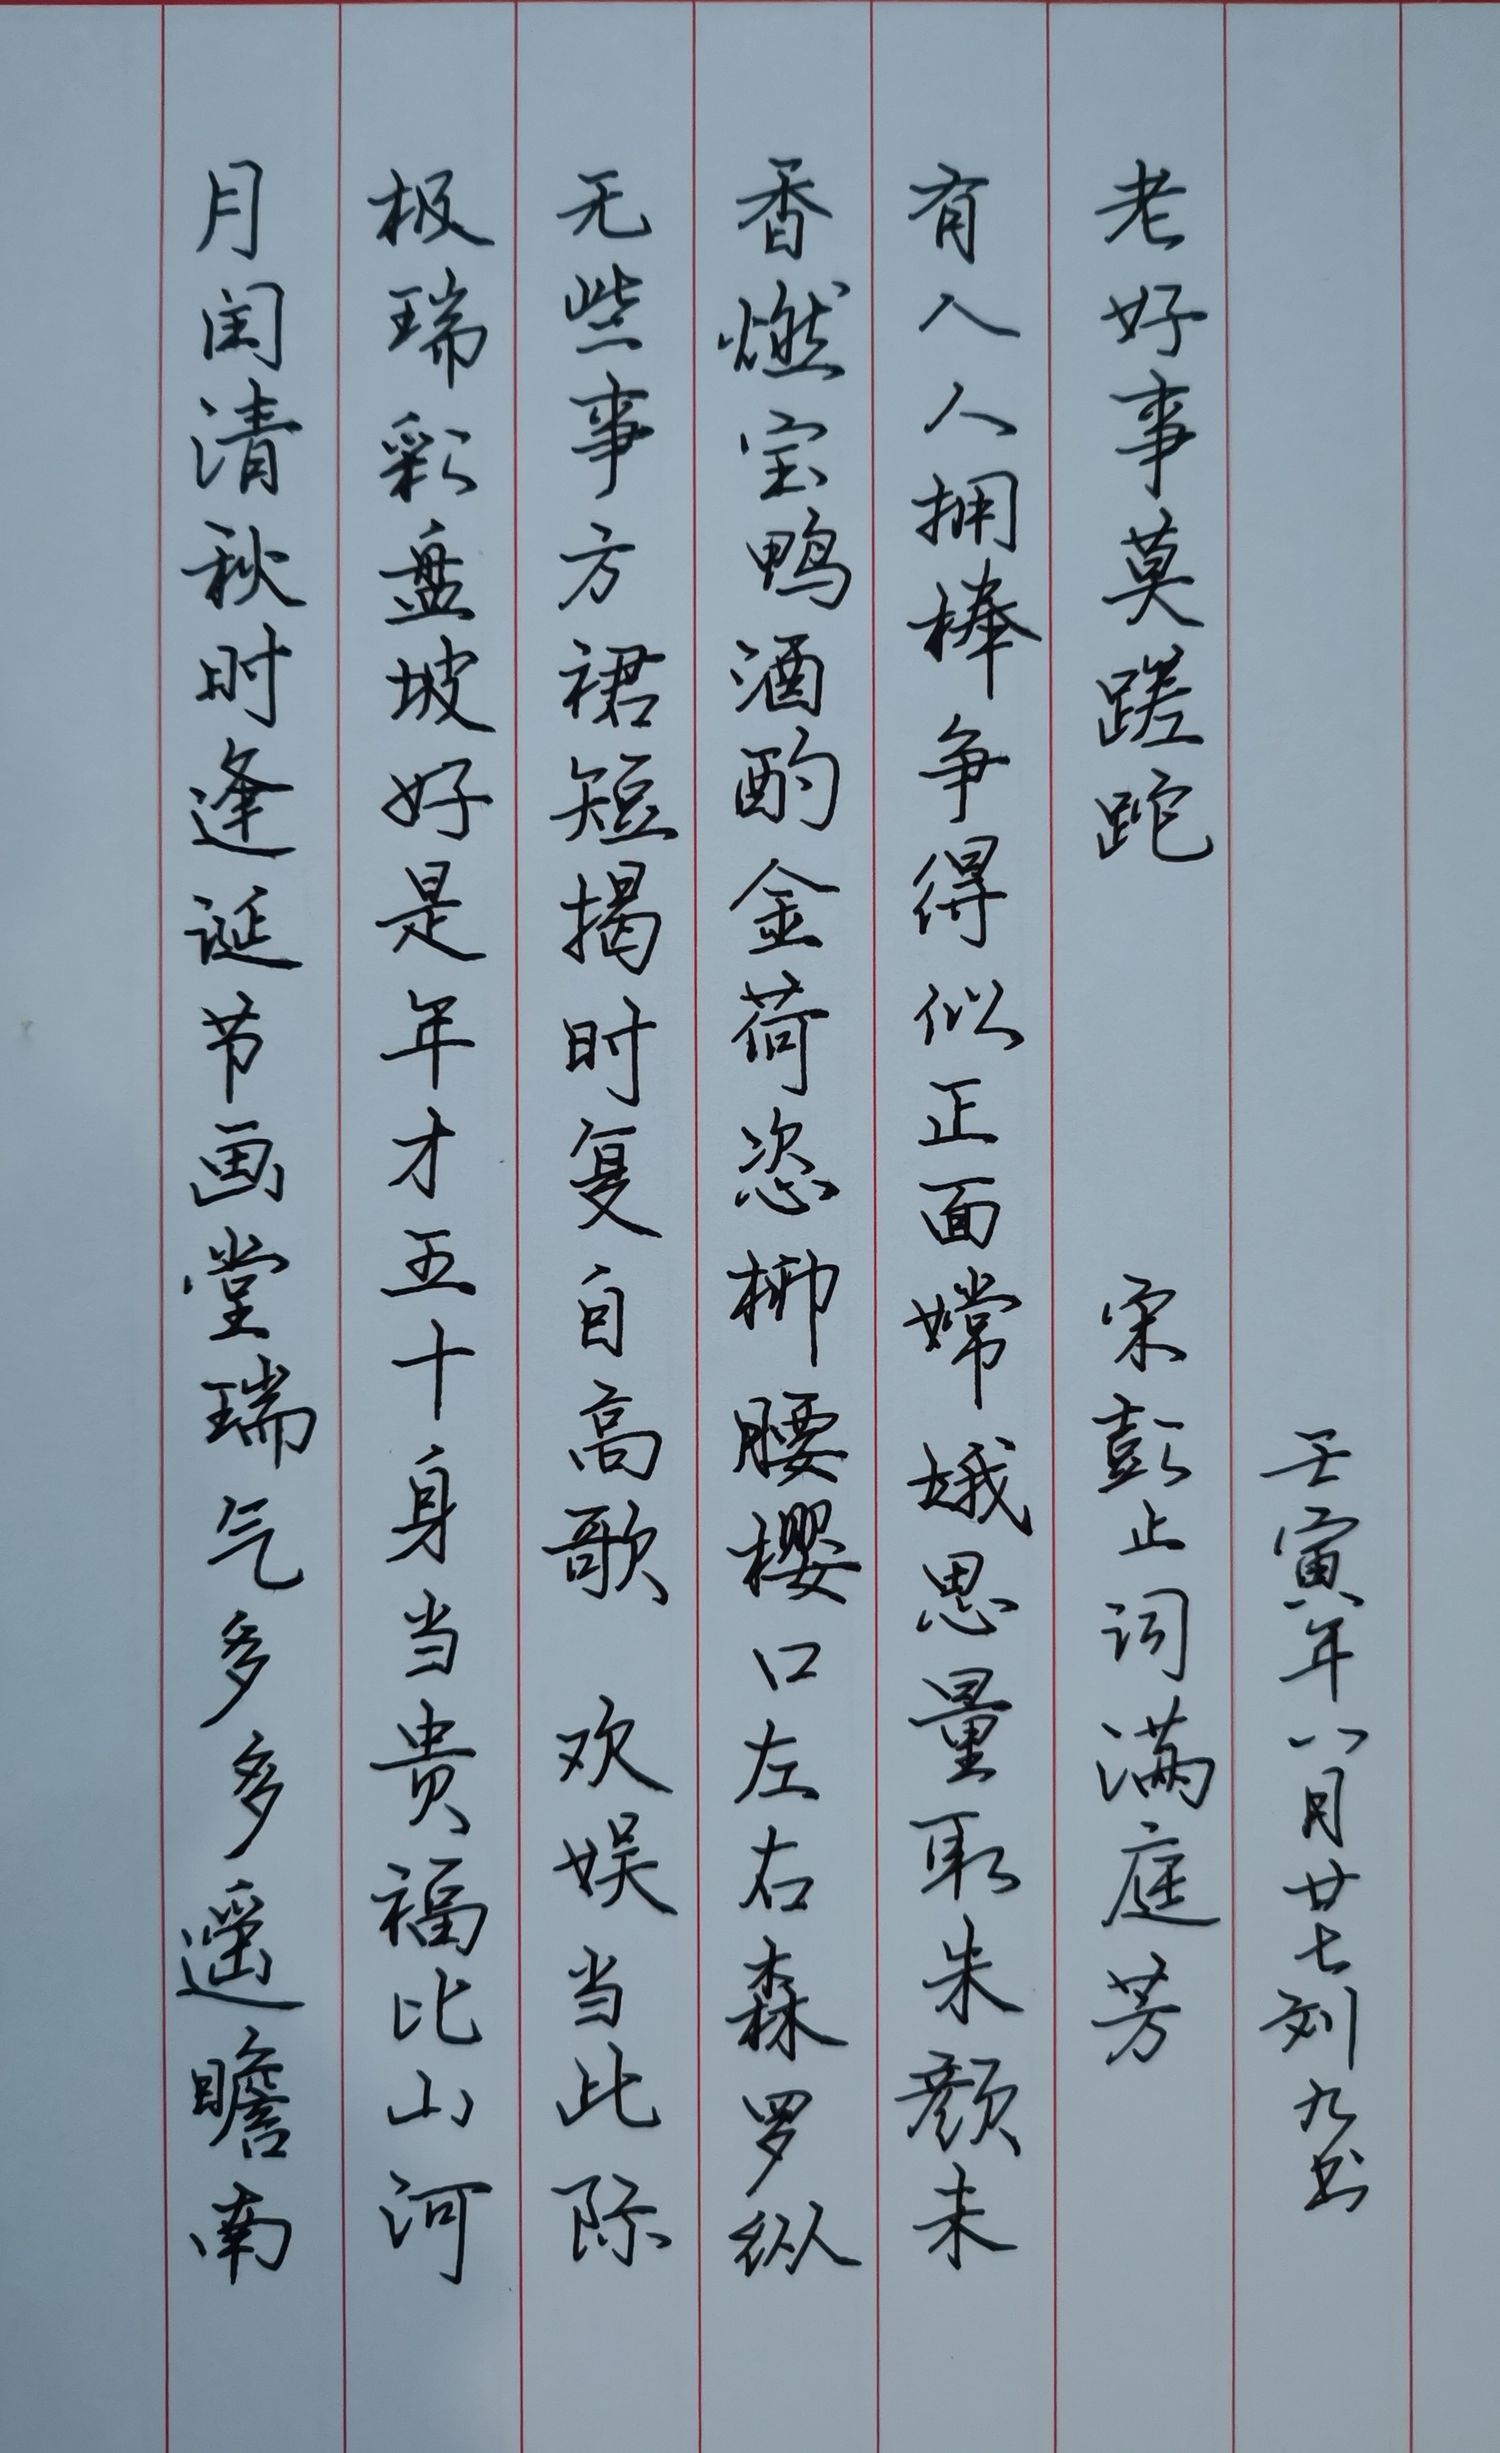 月闰清秋时逢诞节画堂瑞气多多遥瞻南
极瑞彩盘坡好是年才五十身当贵福比山河
无些事方裙短揭时复自高歌 欢娱当此际
香燃宝鸭酒酌金荷恣柳腰樱口左右森罗纵
有人人拥棒争得似正面嫦娥思量取朱颜未
老好事莫蹉跎 宋彭止词满庭芳
壬寅年八月廿七刘九书